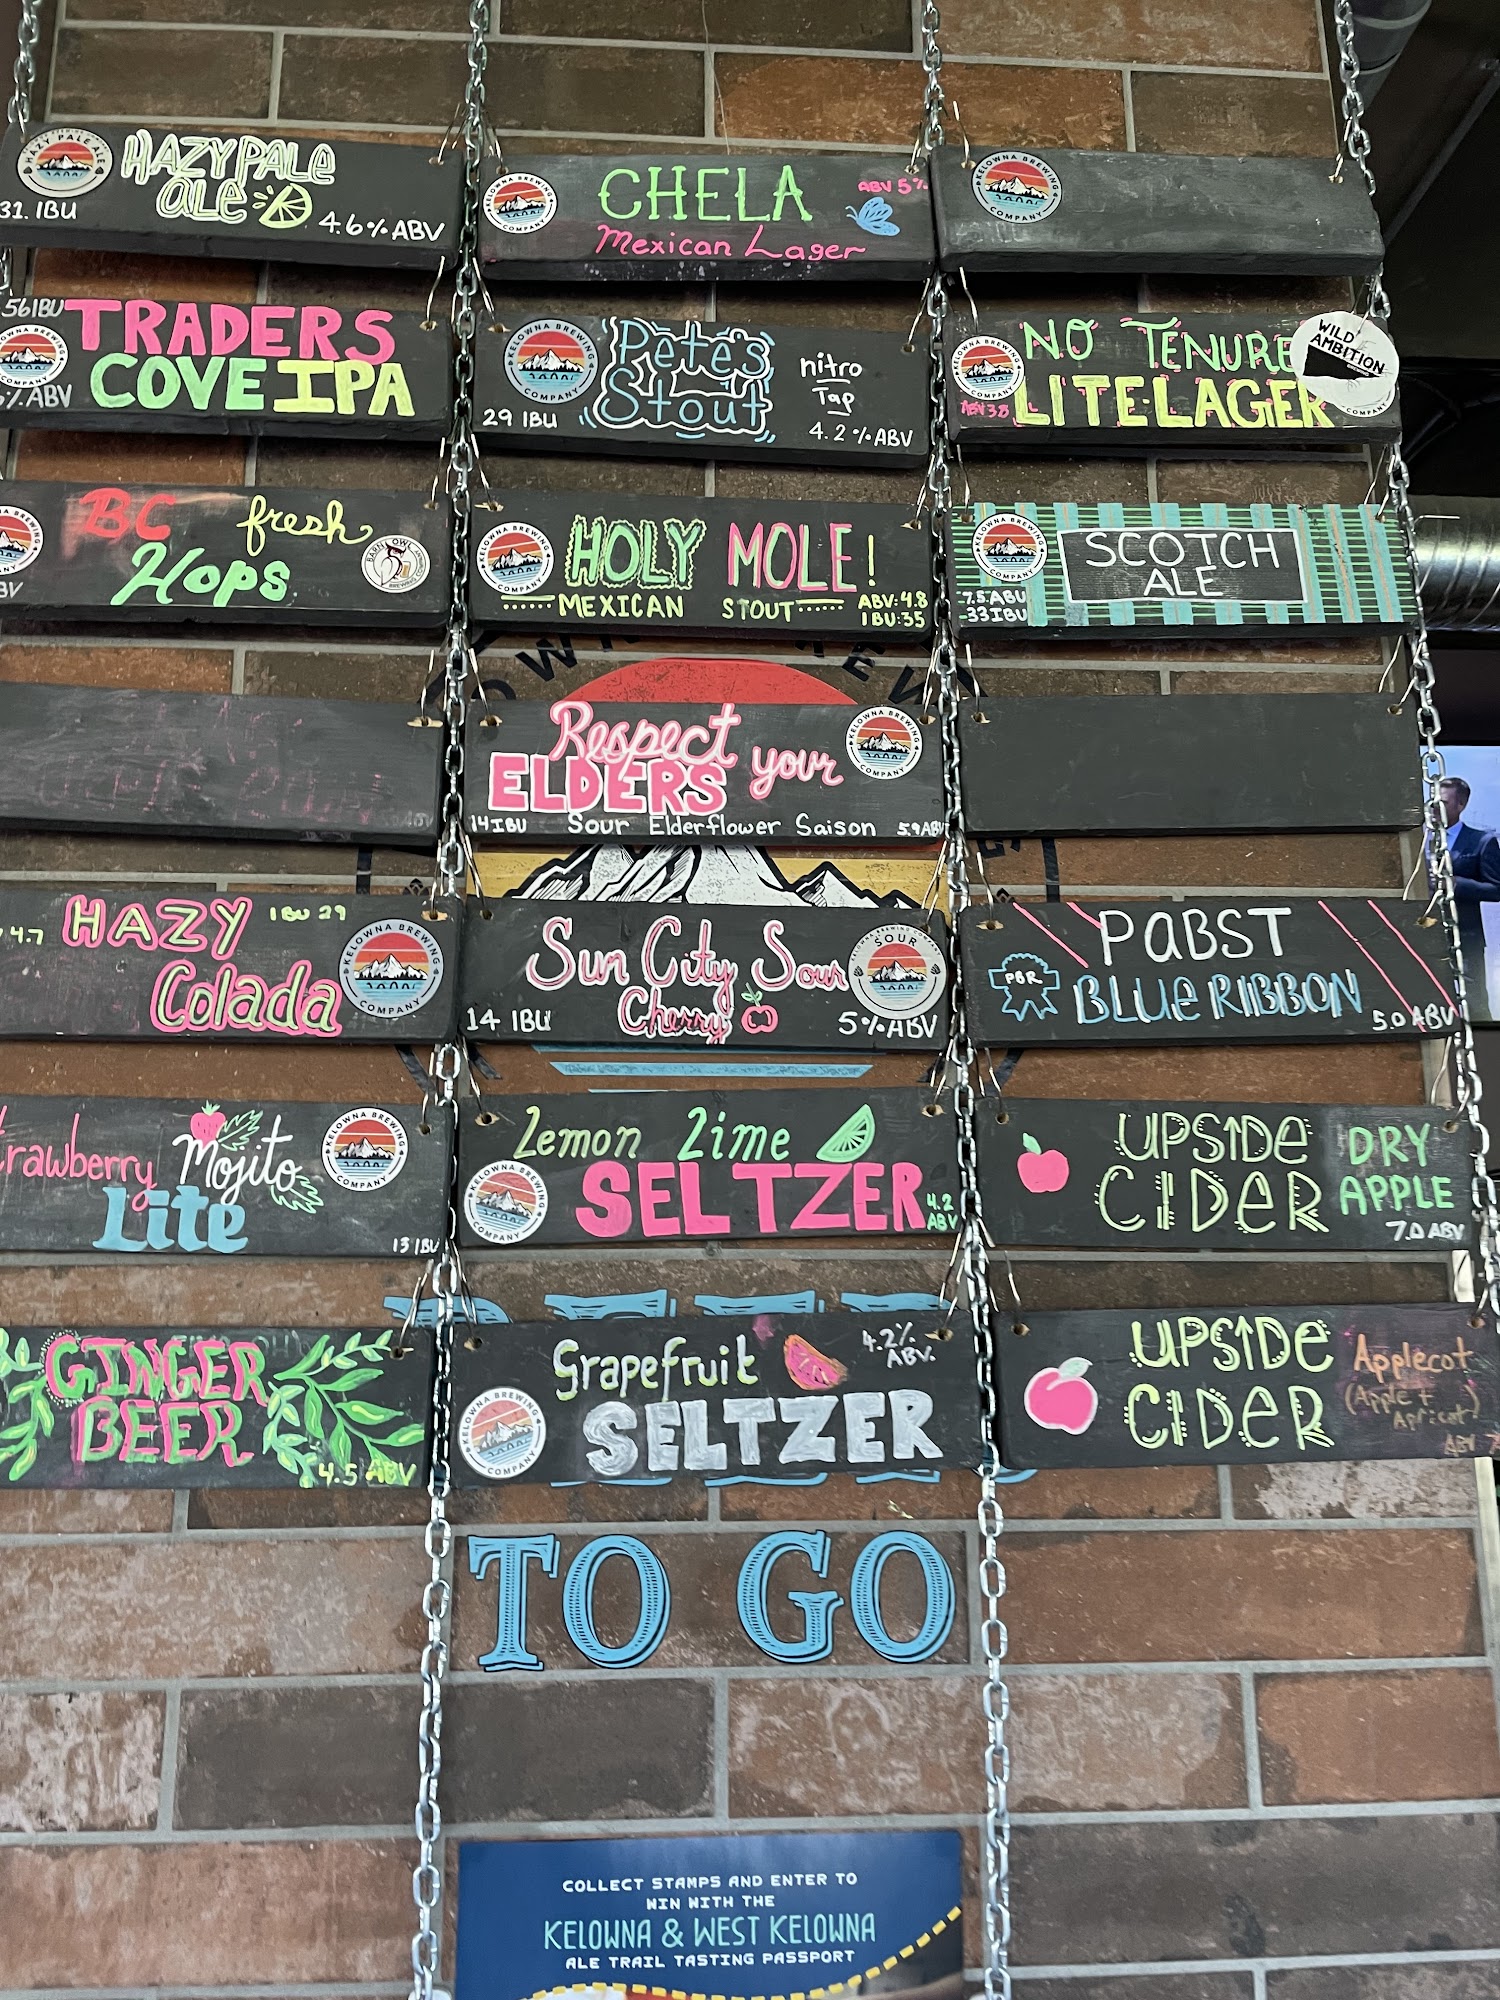 HAZY PALE ALE
HAZY PALE
ALE
31. IBU
4.6% ABV
KELOWNA BREWING
COMPANY
CHELA
ABV 5%
Mexican Lager
KELOWNA BREWING
COMPANY
56 IBU
TRADERS
COVE IPA
% ABV
KELOWNA BREWING
COMPANY
KELOWNA BREWING
COMPANY
Pete's
Stout
nitro
Tap
29 IBU
4.2% ABV
KELOWNA BREWING
COMPANY
NO TENURE
LITE-LAGER
ABV 3.8
WILD
AMBITION
BC fresh
Hops
BARN OWL
BREWING
KELOWNA BREWING
COMPANY
HOLY MOLE!
MEXICAN STOUT
ABV: 4.8
IBU: 35
KELOWNA BREWING
COMPANY
SCOTCH
ALE
7.5 ABU
33 IBU
Respect your
ELDERS
14 IBU Sour Elderflower Saison 5.9 ABV
KELOWNA BREWING
COMPANY
4.7
HAZY
IBU 29
Colada
KELOWNA BREWING
COMPANY
Sun City Sour
Cherry
14 IBU
5% ABV
SOUR
COMPANY
PABST
BLUE RIBBON
PBR
5.0 ABV
trawberry Mojito
Lite
13 IBU
KELOWNA BREWING
COMPANY
Lemon Lime
SELTZER
4.2
ABV
KELOWNA BREWING
COMPANY
UPSIDE
CIDER
DRY
APPLE
7.0 ABV
GINGER
BEER
4.5 ABV
Grapefruit
4.2%
ABV.
SELTZER
KELOWNA BREWING
COMPANY
UPSIDE
CIDER
Applecot
(Apple +
Apricot)
ABV
TO GO
COLLECT STAMPS AND ENTER TO
WIN WITH THE
KELOWNA & WEST KELOWNA
ALE TRAIL TASTING PASSPORT